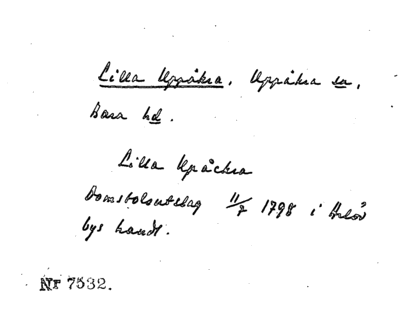 Lilla Uppåkra. Uppåkra sn,
Bara hd.
Lilla Upåckra
Domstolsutslag 11/7 1798 i Arlöv
bys handl.
Nr 7532.